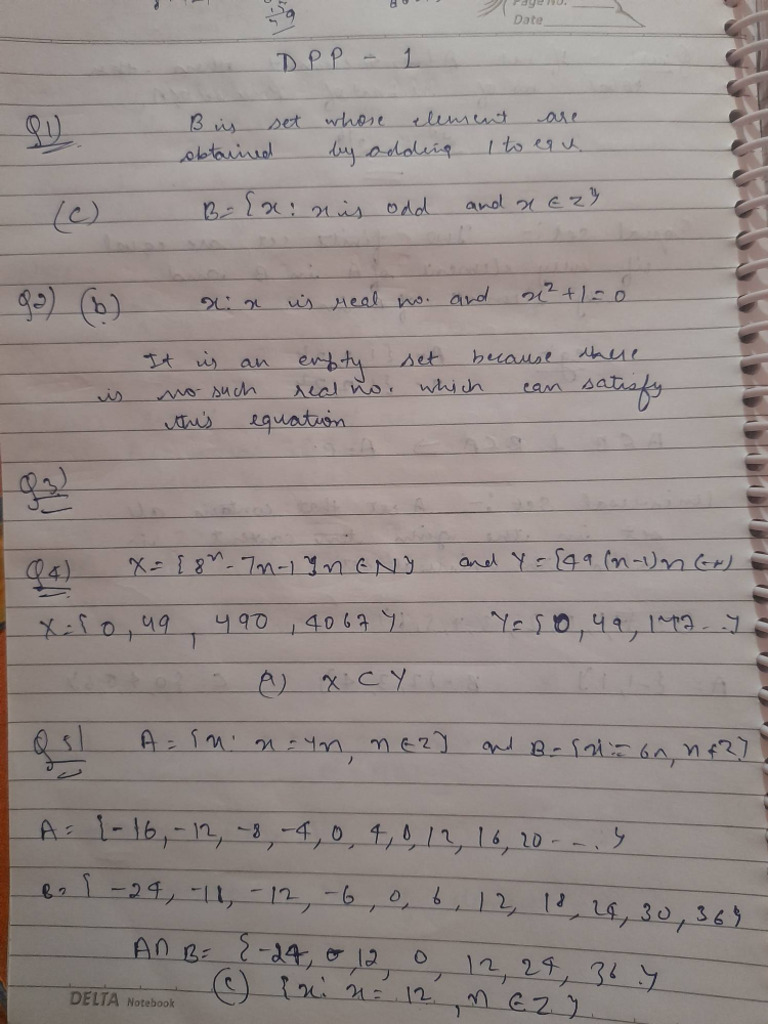 Page No.
Date
15
DPP - 1
Q1) B is set whose element are
obtained by adding 1 to eqv.
(C) B = {x : x is odd and x ∈ Z}
Q2) (b) x : x is real no. and x² + 1 = 0
It is an empty set because there
is no such real no. which can satisfy
this equation
Q3)
Q4) X = {8ⁿ - 7n - 1 } n ∈ N} and Y = {49 (n-1) n ∈ N)
X = { 0, 49, 490, 4067 } Y = { 0, 49, 147 .. }
a) X ⊂ Y
Q5) A = {x : x = 4n, n ∈ Z} and B = {x : = 6n, n ∈ Z}
A = {-16, -12, -8, -4, 0, 4, 8, 12, 16, 20 - - . }
B = { -24, -18, -12, -6, 0, 6, 12, 18, 24, 30, 36}
A ∩ B = {-24, -12, 0, 12, 24, 36 . }
(C) {x : x = 12, n ∈ Z}
DELTA Notebook